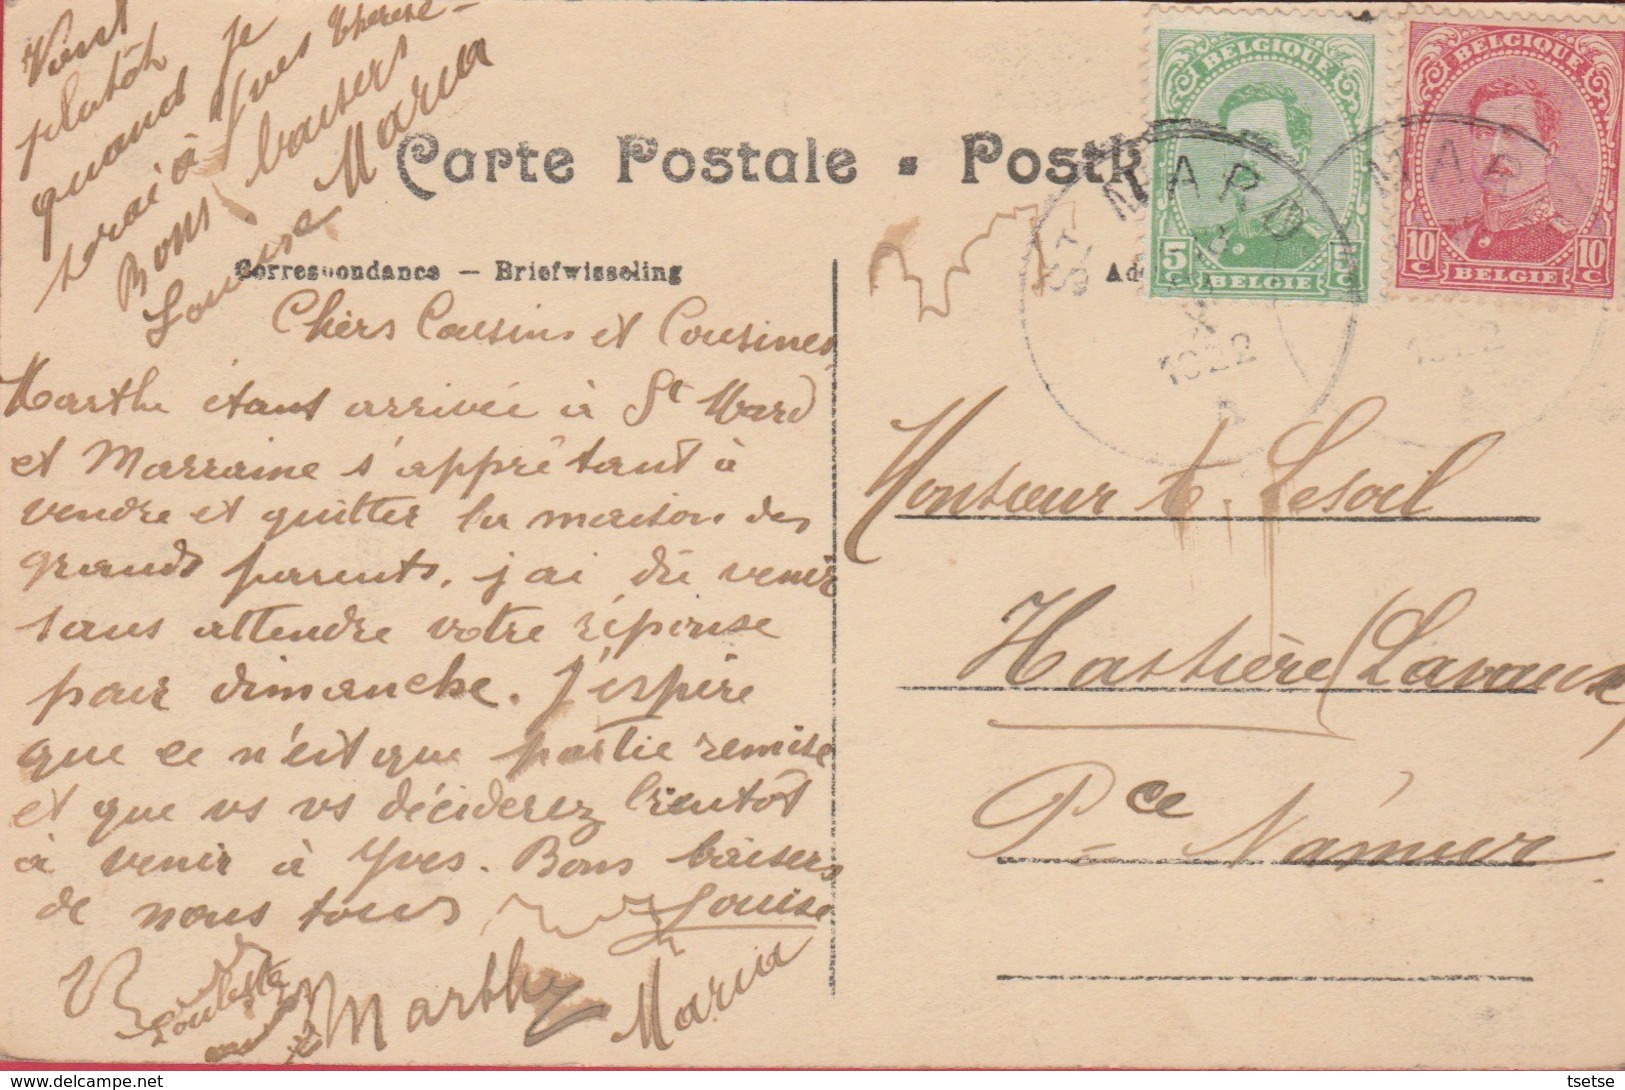 Vient
plutôt
quand je
serai à Yves Thérèse -
Bons baisers
Louise Maria
Carte Postale - Postk
Correspondance — Briefwisseling
Chers Cousins et Cousines
Marthe étant arrivée à St Mard
et Marraine s'apprêtant à
vendre et quitter la maison des
grands parents, j'ai dû venir
sans attendre votre réponse
pour dimanche. J'espère
que ce n'est que partie remise
et que vs vs déciderez bientôt
à venir à Yves. Bons baisers
de nous tous Louise
Marthe Maria
BELGIQUE
5 C 5 C
BELGIE
BELGIQUE
10 C 10 C
BELGIE
ST MARD
1922
A
MARD
1922
A
Ad
Monsieur t. Lesoil
Hastière (Lavaux)
Pce Namur
delcampe.net
tsetse